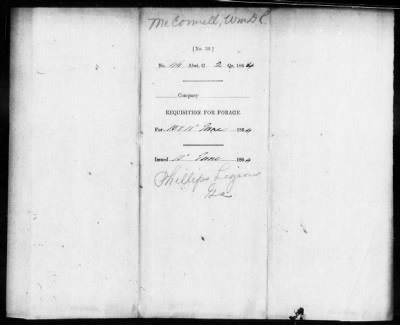 McConnell, Wm D C
[No. 33]
No. Abst. G 2 Qr. 1864
Company
REQUISITION FOR FORAGE.
For June 1864
Issued June 1864
Phillips Legion
Ga